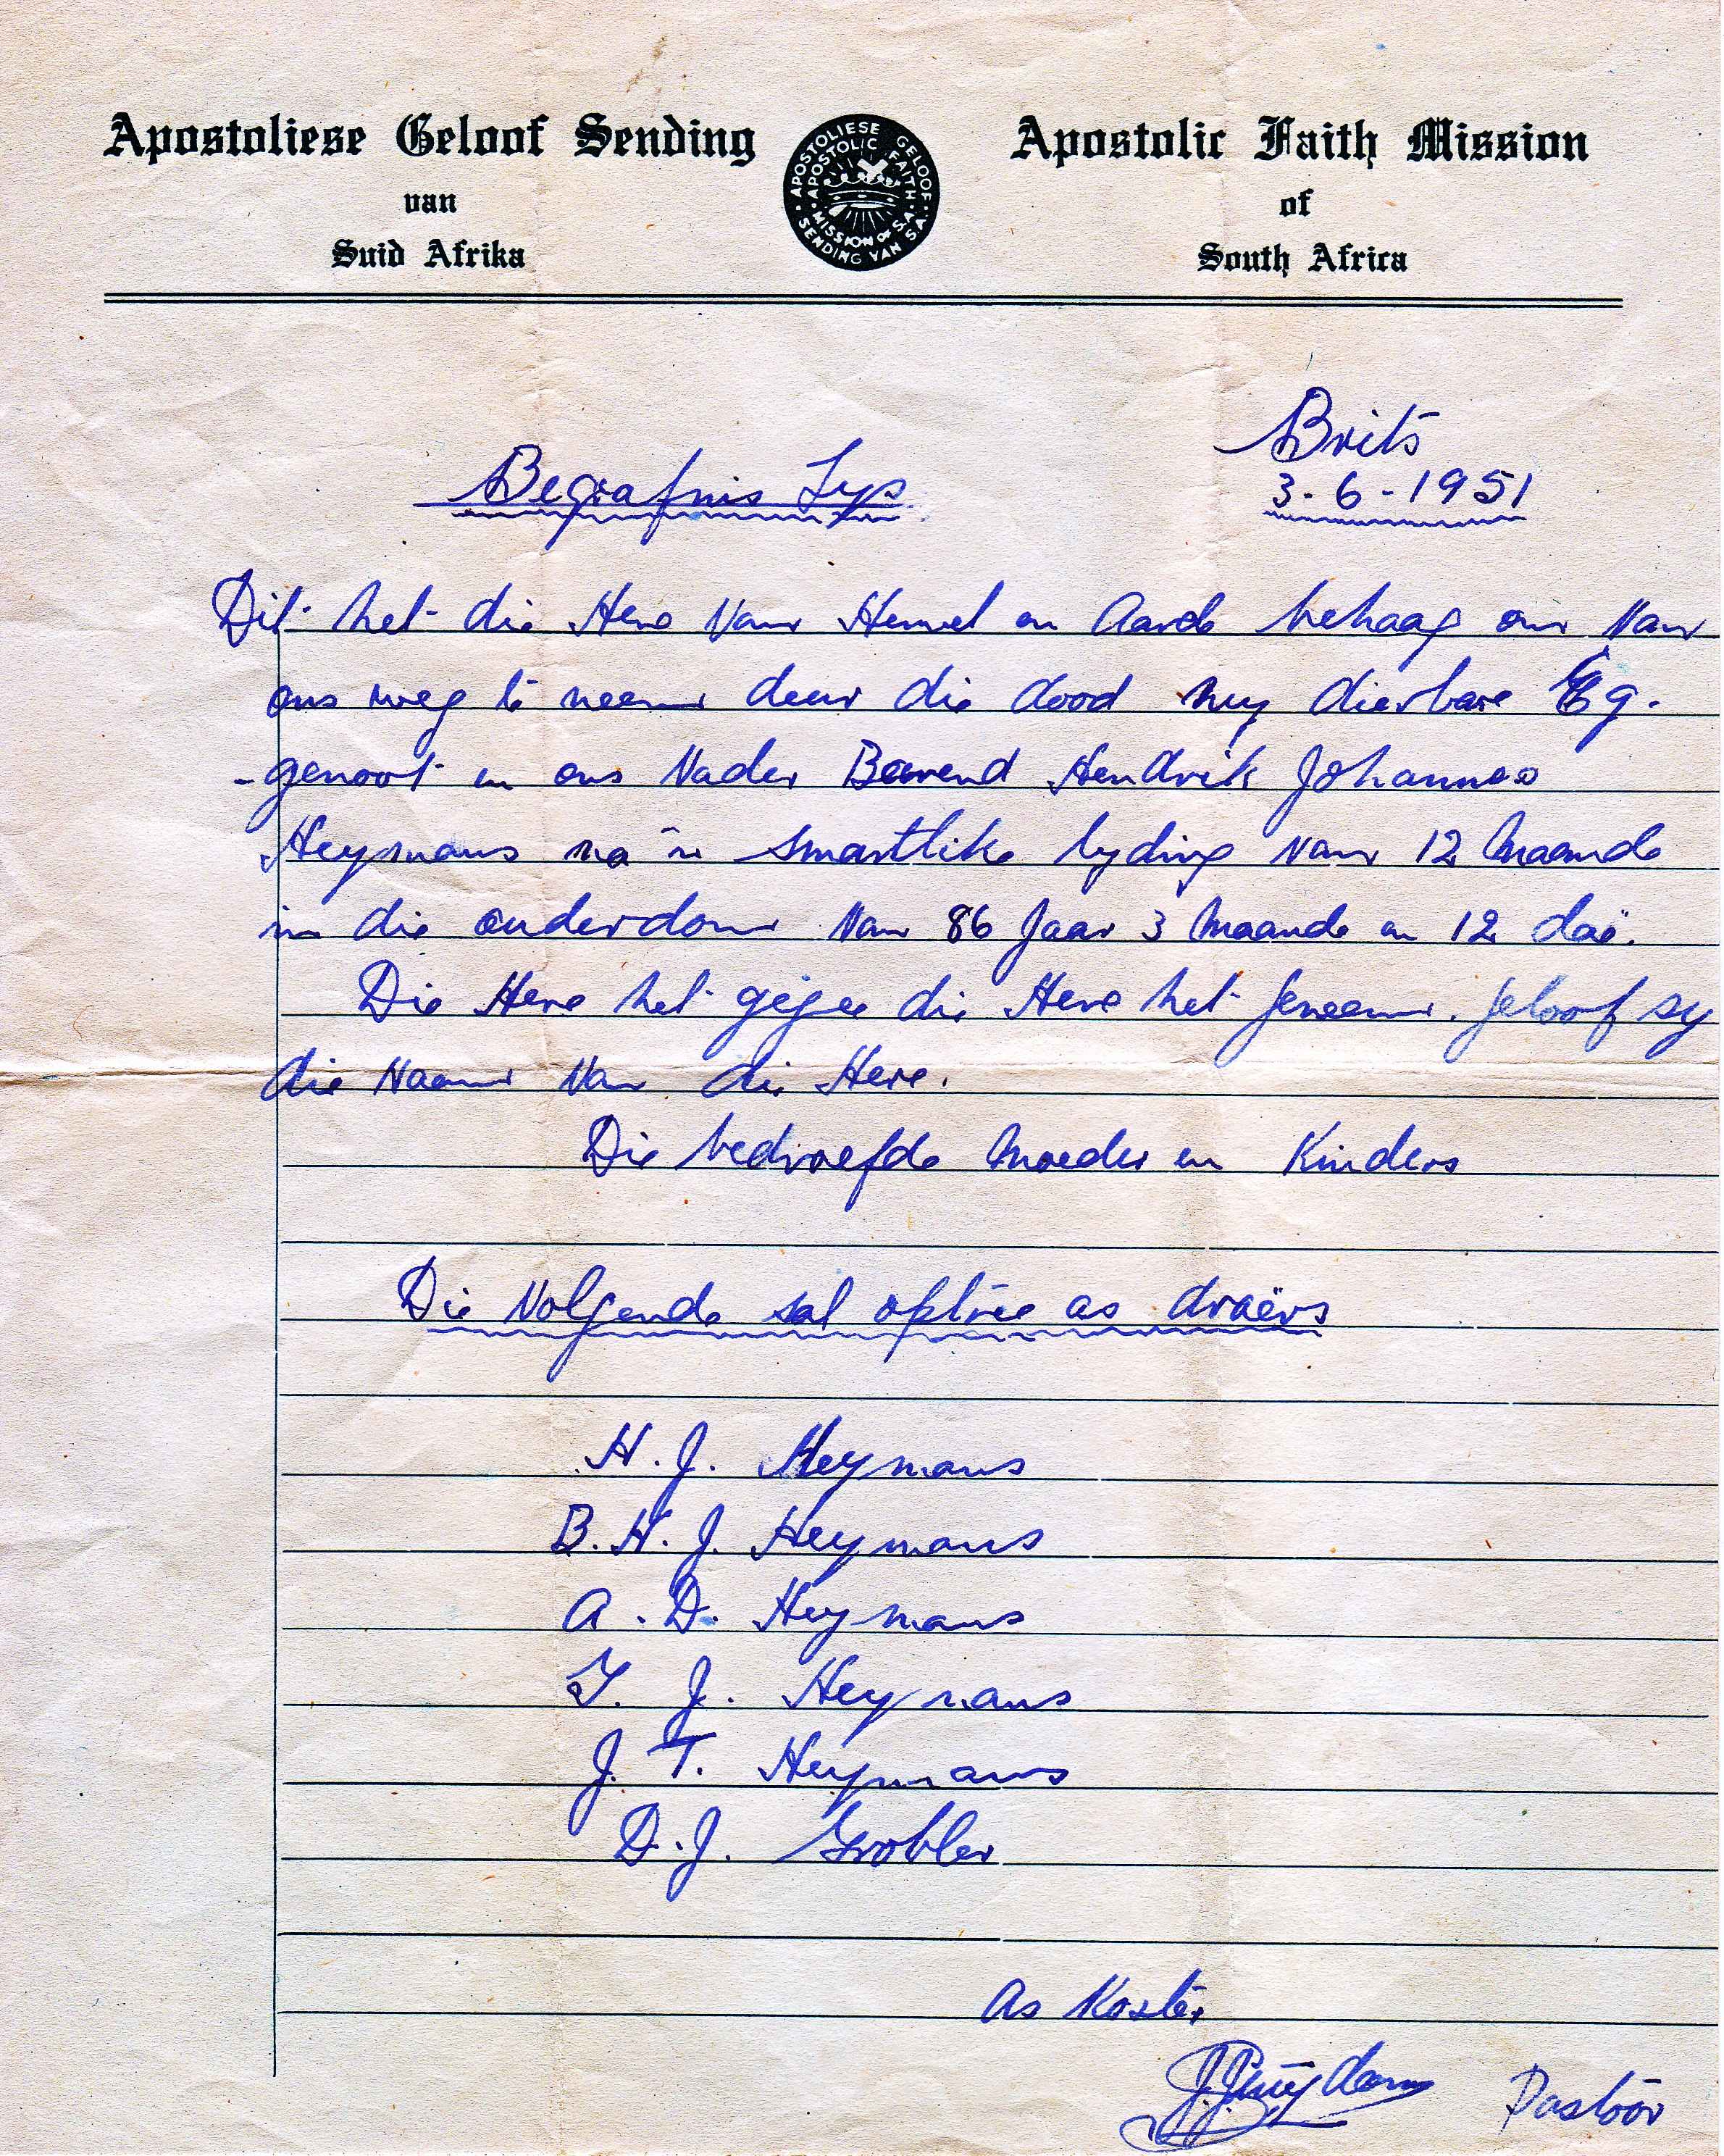 Apostoliese Geloof Sending
van
Suid Afrika
APOSTOLIESE GELOOF SENDING VAN S.A.
APOSTOLIC FAITH MISSION OF S.A.
Apostolic Faith Mission
of
South Africa
Brits
3-6-1951
Begrafnis Lys
Dit het die Here van Hemel en Aarde behaag om van
ons weg te neem deur die dood my dierbare Eg-
-genoot en ons Vader Barend Hendrik Johannes
Heymans na 'n smartlike lyding van 12 maande
in die ouderdom van 86 Jaar 3 maande en 12 daë.
Die Here het gegee die Here het geneem. geloof sy
die Naam van die Here.
Die bedroefde moeder en Kinders
Die Volgende sal optree as draërs
H.J. Heymans
B.H.J. Heymans
A.D. Heymans
J. Heymans
J.T. Heymans
D.J. Grobler
As Koster
Pastoor